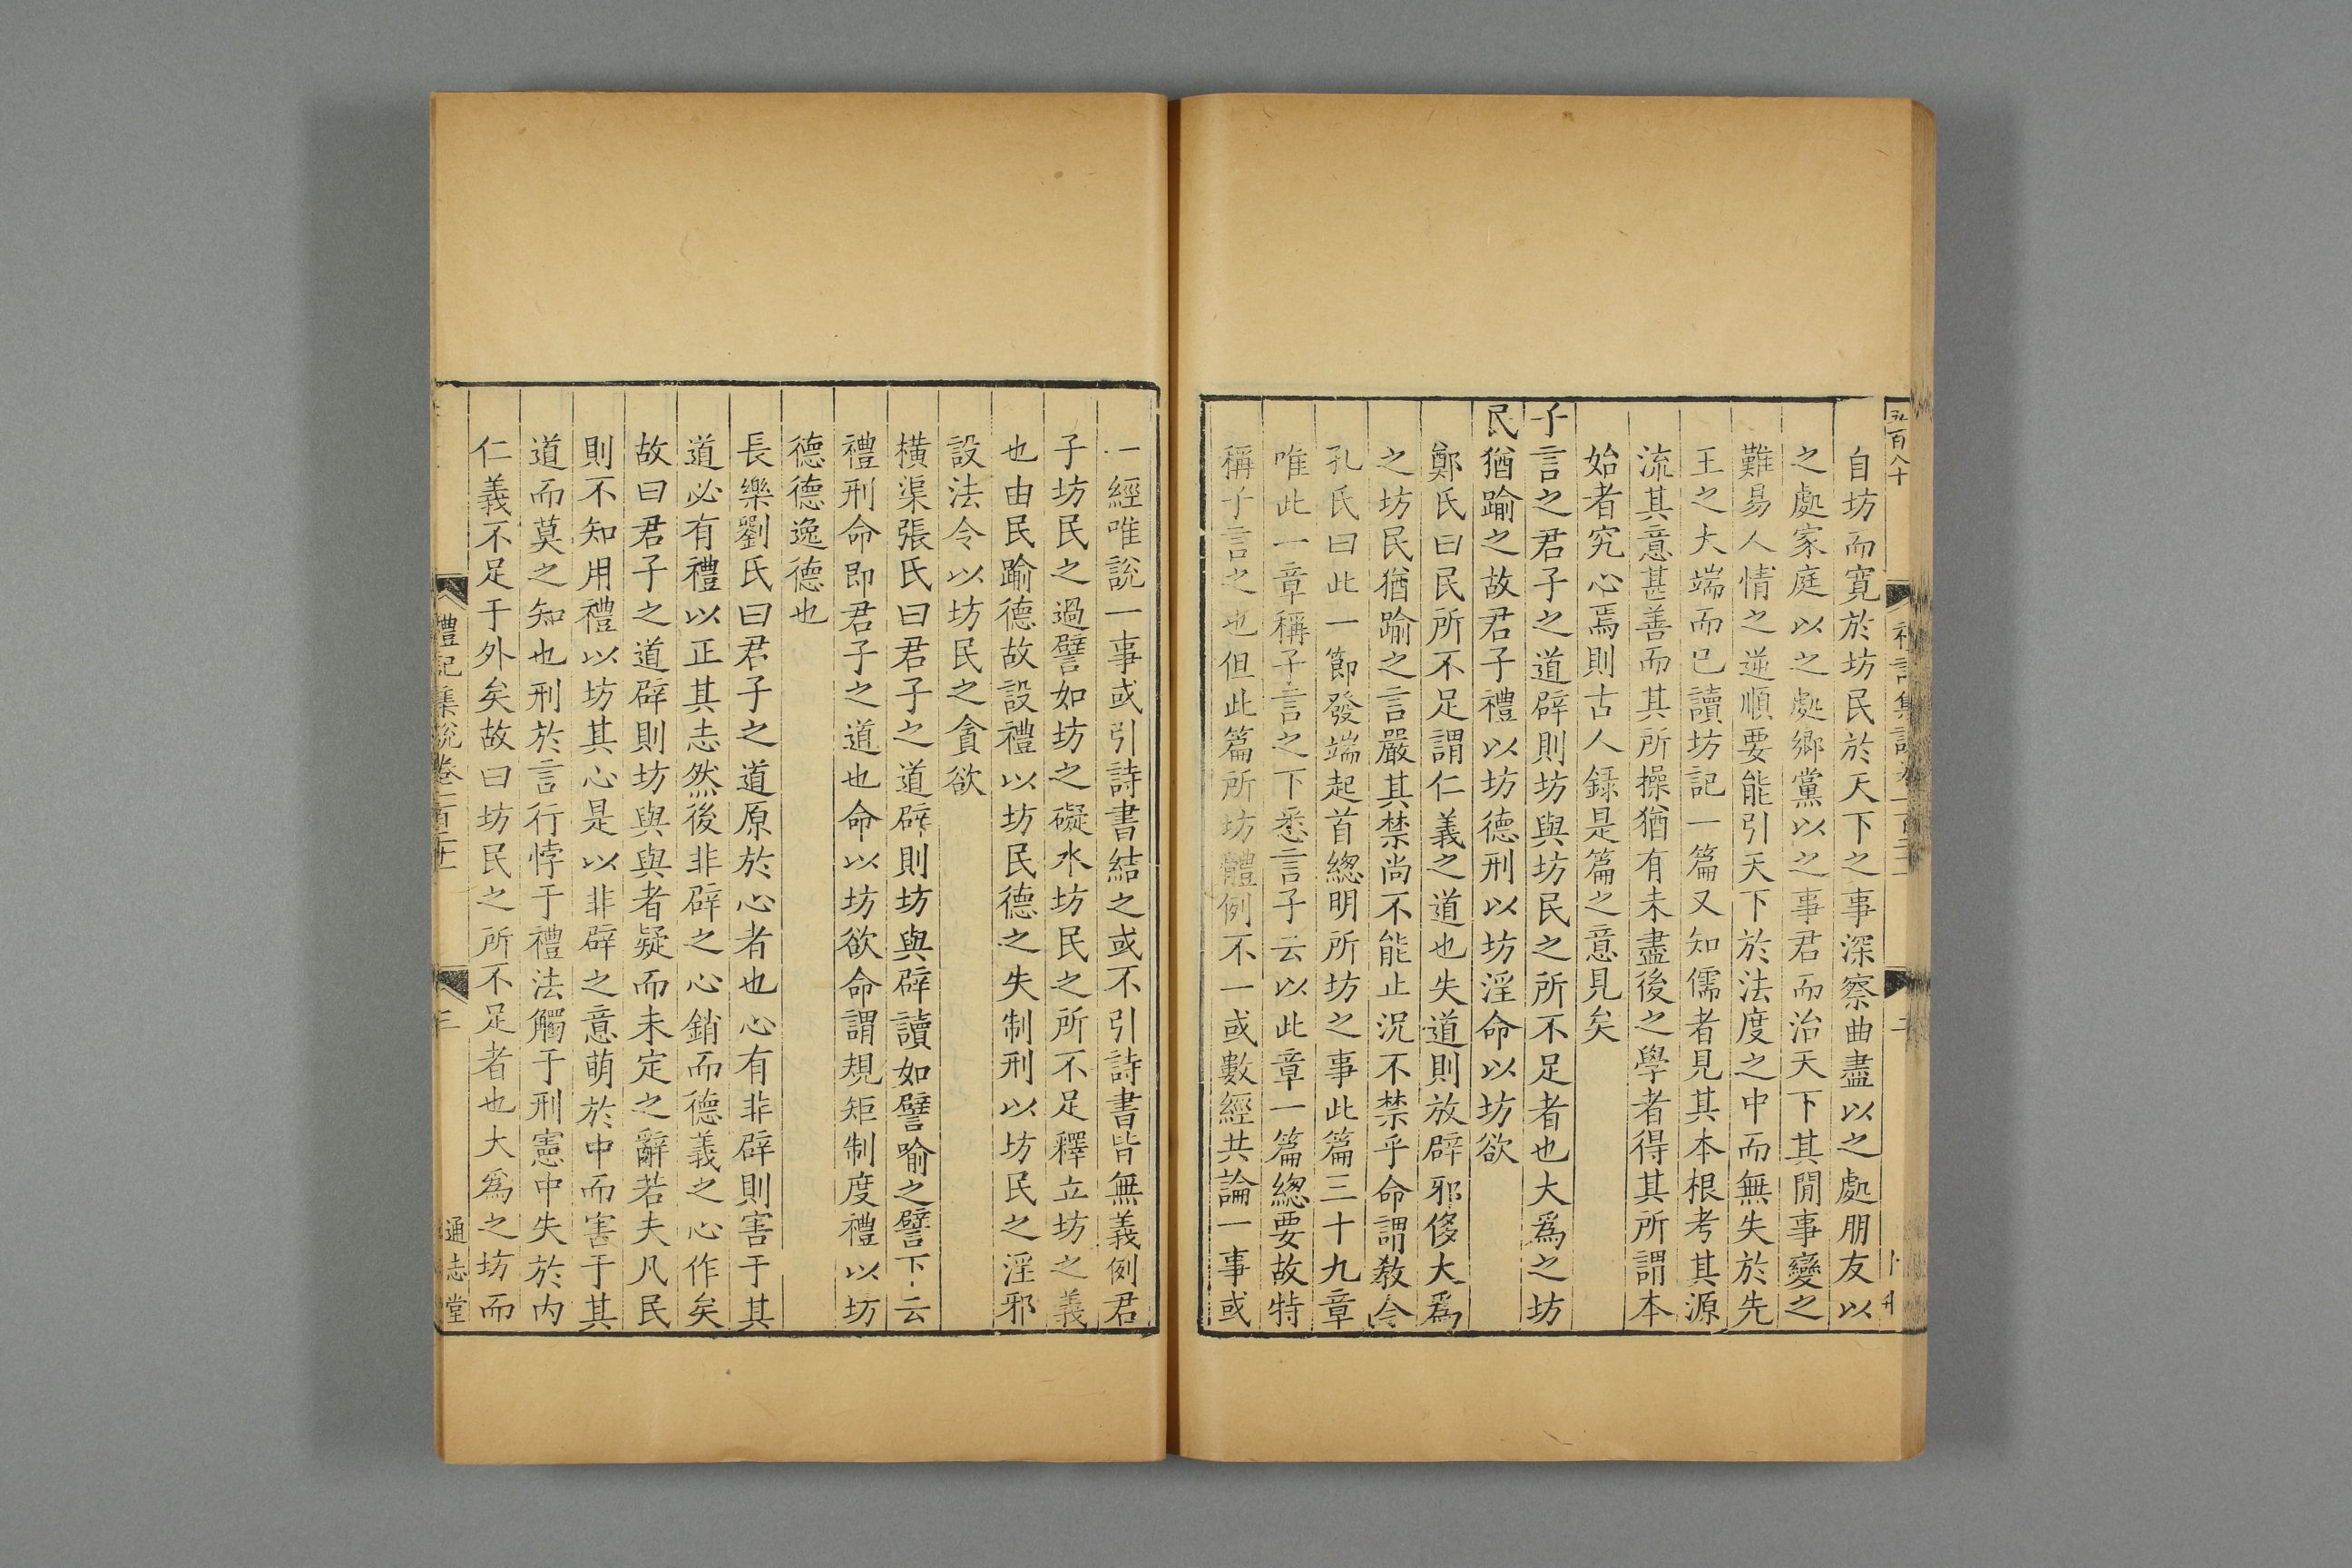 自坊而寛於坊民於天下之事深察曲盡以之處朋友以
之處家庭以之處鄉黨以之事君而治天下其閒事變之
難易人情之逆順要能引天下於法度之中而無失於先
王之大端而已讀坊記一篇又知儒者見其本根考其源
流其意甚善而其所操猶有未盡後之學者得其所謂本
始者究心焉則古人錄是篇之意見矣
子言之君子之道辟則坊與坊民之所不足者也大爲之坊
民猶踰之故君子禮以坊德刑以坊淫命以坊欲
鄭氏曰民所不足謂仁義之道也失道則放辟邪侈大爲
之坊民猶踰之言嚴其禁尚不能止況不禁乎命謂敎令
孔氏曰此一節發端起首總明所坊之事此篇三十九章
唯此一章稱子言之下悉言子云以此章一篇總要故特
稱子言之也但此篇所坊體例不一或數經共論一事或
一經唯說一事或引詩書結之或不引詩書皆無義例君
子坊民之過譬如坊之礙水坊民之所不足釋立坊之義
也由民踰德故設禮以坊民德之失制刑以坊民之淫邪
設法令以坊民之貪欲
橫渠張氏曰君子之道辟則坊與辟讀如譬喻之譬下云
禮刑命即君子之道也命以坊欲命謂規矩制度禮以坊
德德逸德也
長樂劉氏曰君子之道原於心者也心有非辟則害于其
道必有禮以正其志然後非辟之心銷而德義之心作矣
故曰君子之道辟則坊與與者疑而未定之辭若夫凡民
則不知用禮以坊其心是以非辟之意萌於中而害于其
道而莫之知也刑於言行悖于禮法觸于刑憲中失於內
仁義不足于外矣故曰坊民之所不足者也大爲之坊而
禮記集說卷一百二十 三 通志堂